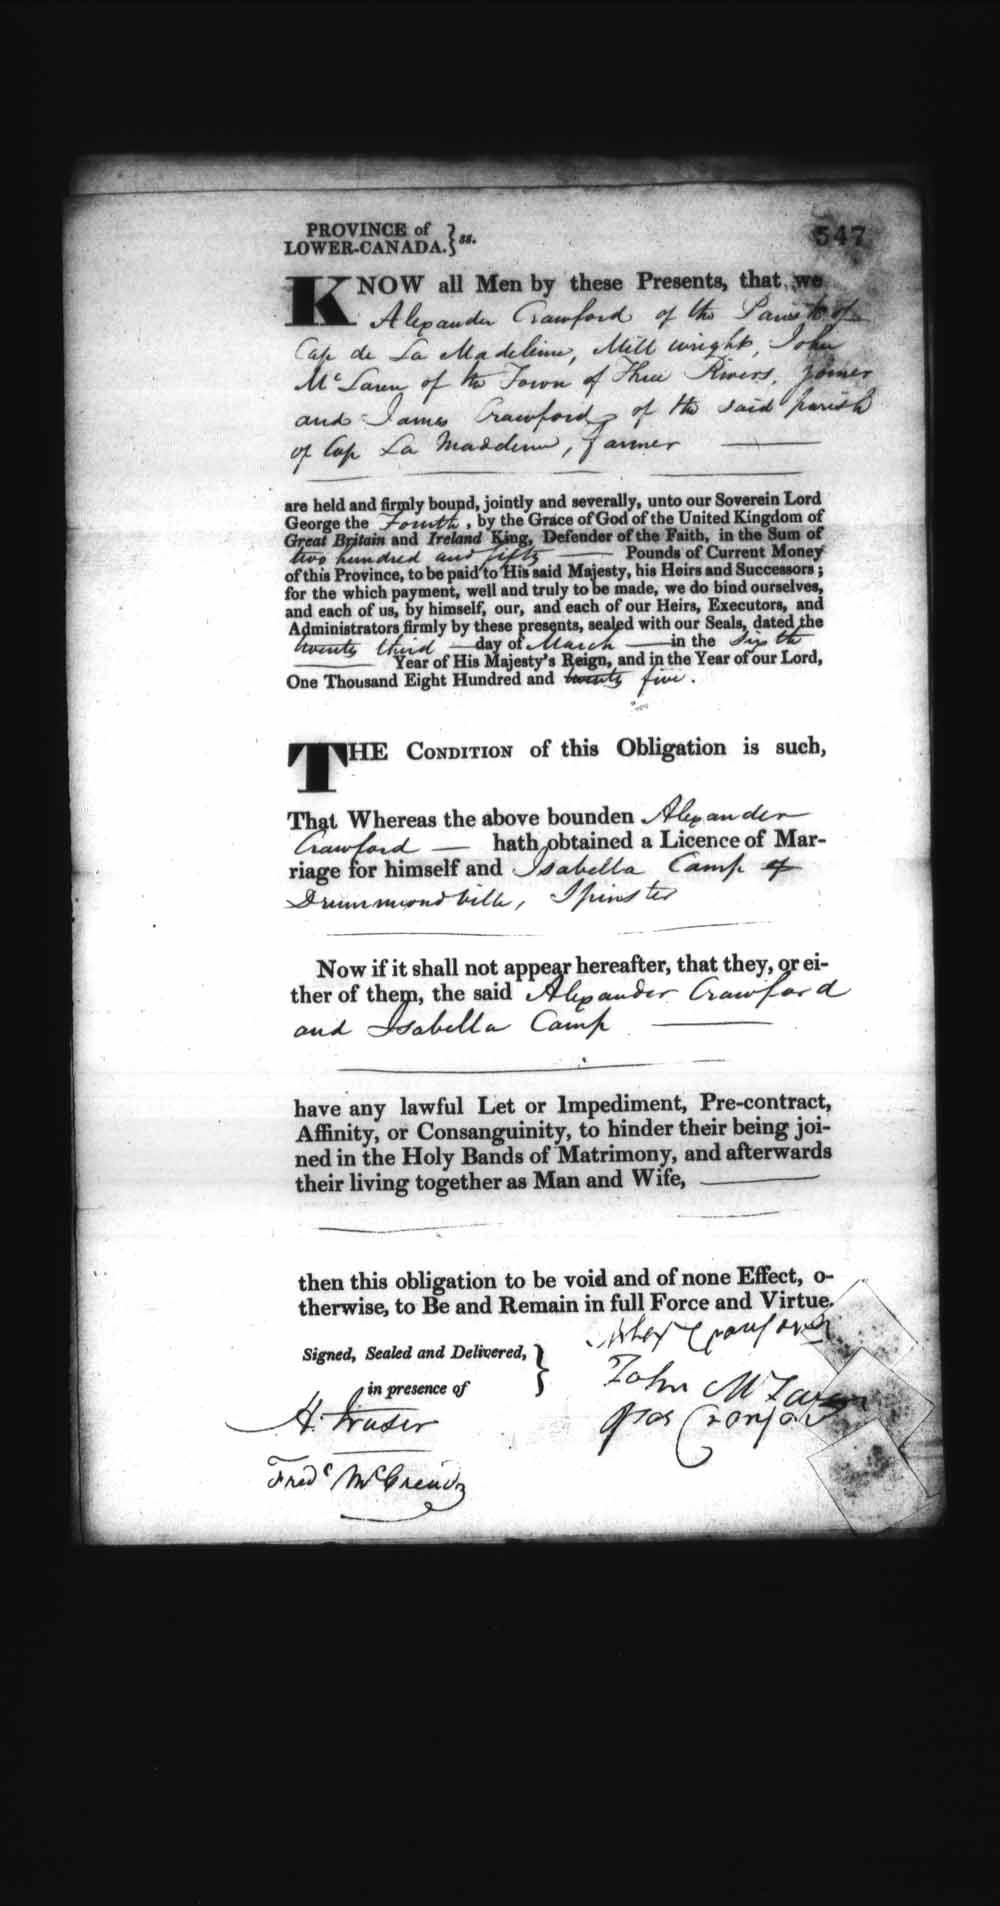 PROVINCE of
LOWER-CANADA. } ss.
547
KNOW all Men by these Presents, that we
Alexander Crawford of the Parish of
Cap de La Madeleine, Mill wright, John
McLaren of the Town of Three Rivers, Joiner
and James Crawford of the said parish
of Cap La Maddeine, farmer
are held and firmly bound, jointly and severally, unto our Soverein Lord
George the Fourth, by the Grace of God of the United Kingdom of
Great Britain and Ireland King, Defender of the Faith, in the Sum of
two hundred and fifty Pounds of Current Money
of this Province, to be paid to His said Majesty, his Heirs and Successors;
for the which payment, well and truly to be made, we do bind ourselves,
and each of us, by himself, our, and each of our Heirs, Executors, and
Administrators firmly by these presents, sealed with our Seals, dated the
twenty third day of March in the Sixth
Year of His Majesty's Reign, and in the Year of our Lord,
One Thousand Eight Hundred and twenty five.
THE CONDITION of this Obligation is such,
That Whereas the above bounden Alexander
Crawford — hath obtained a Licence of Mar-
riage for himself and Isabella Camp of
Drummondville, Spinster
Now if it shall not appear hereafter, that they, or ei-
ther of them, the said Alexander Crawford
and Isabella Camp
have any lawful Let or Impediment, Pre-contract,
Affinity, or Consanguinity, to hinder their being joi-
ned in the Holy Bands of Matrimony, and afterwards
their living together as Man and Wife,
then this obligation to be void and of none Effect, o-
therwise, to Be and Remain in full Force and Virtue.
Signed, Sealed and Delivered,
in presence of
Alexr Crawford
John McLaren
Jas Crawford
H. Fraser
Fredc